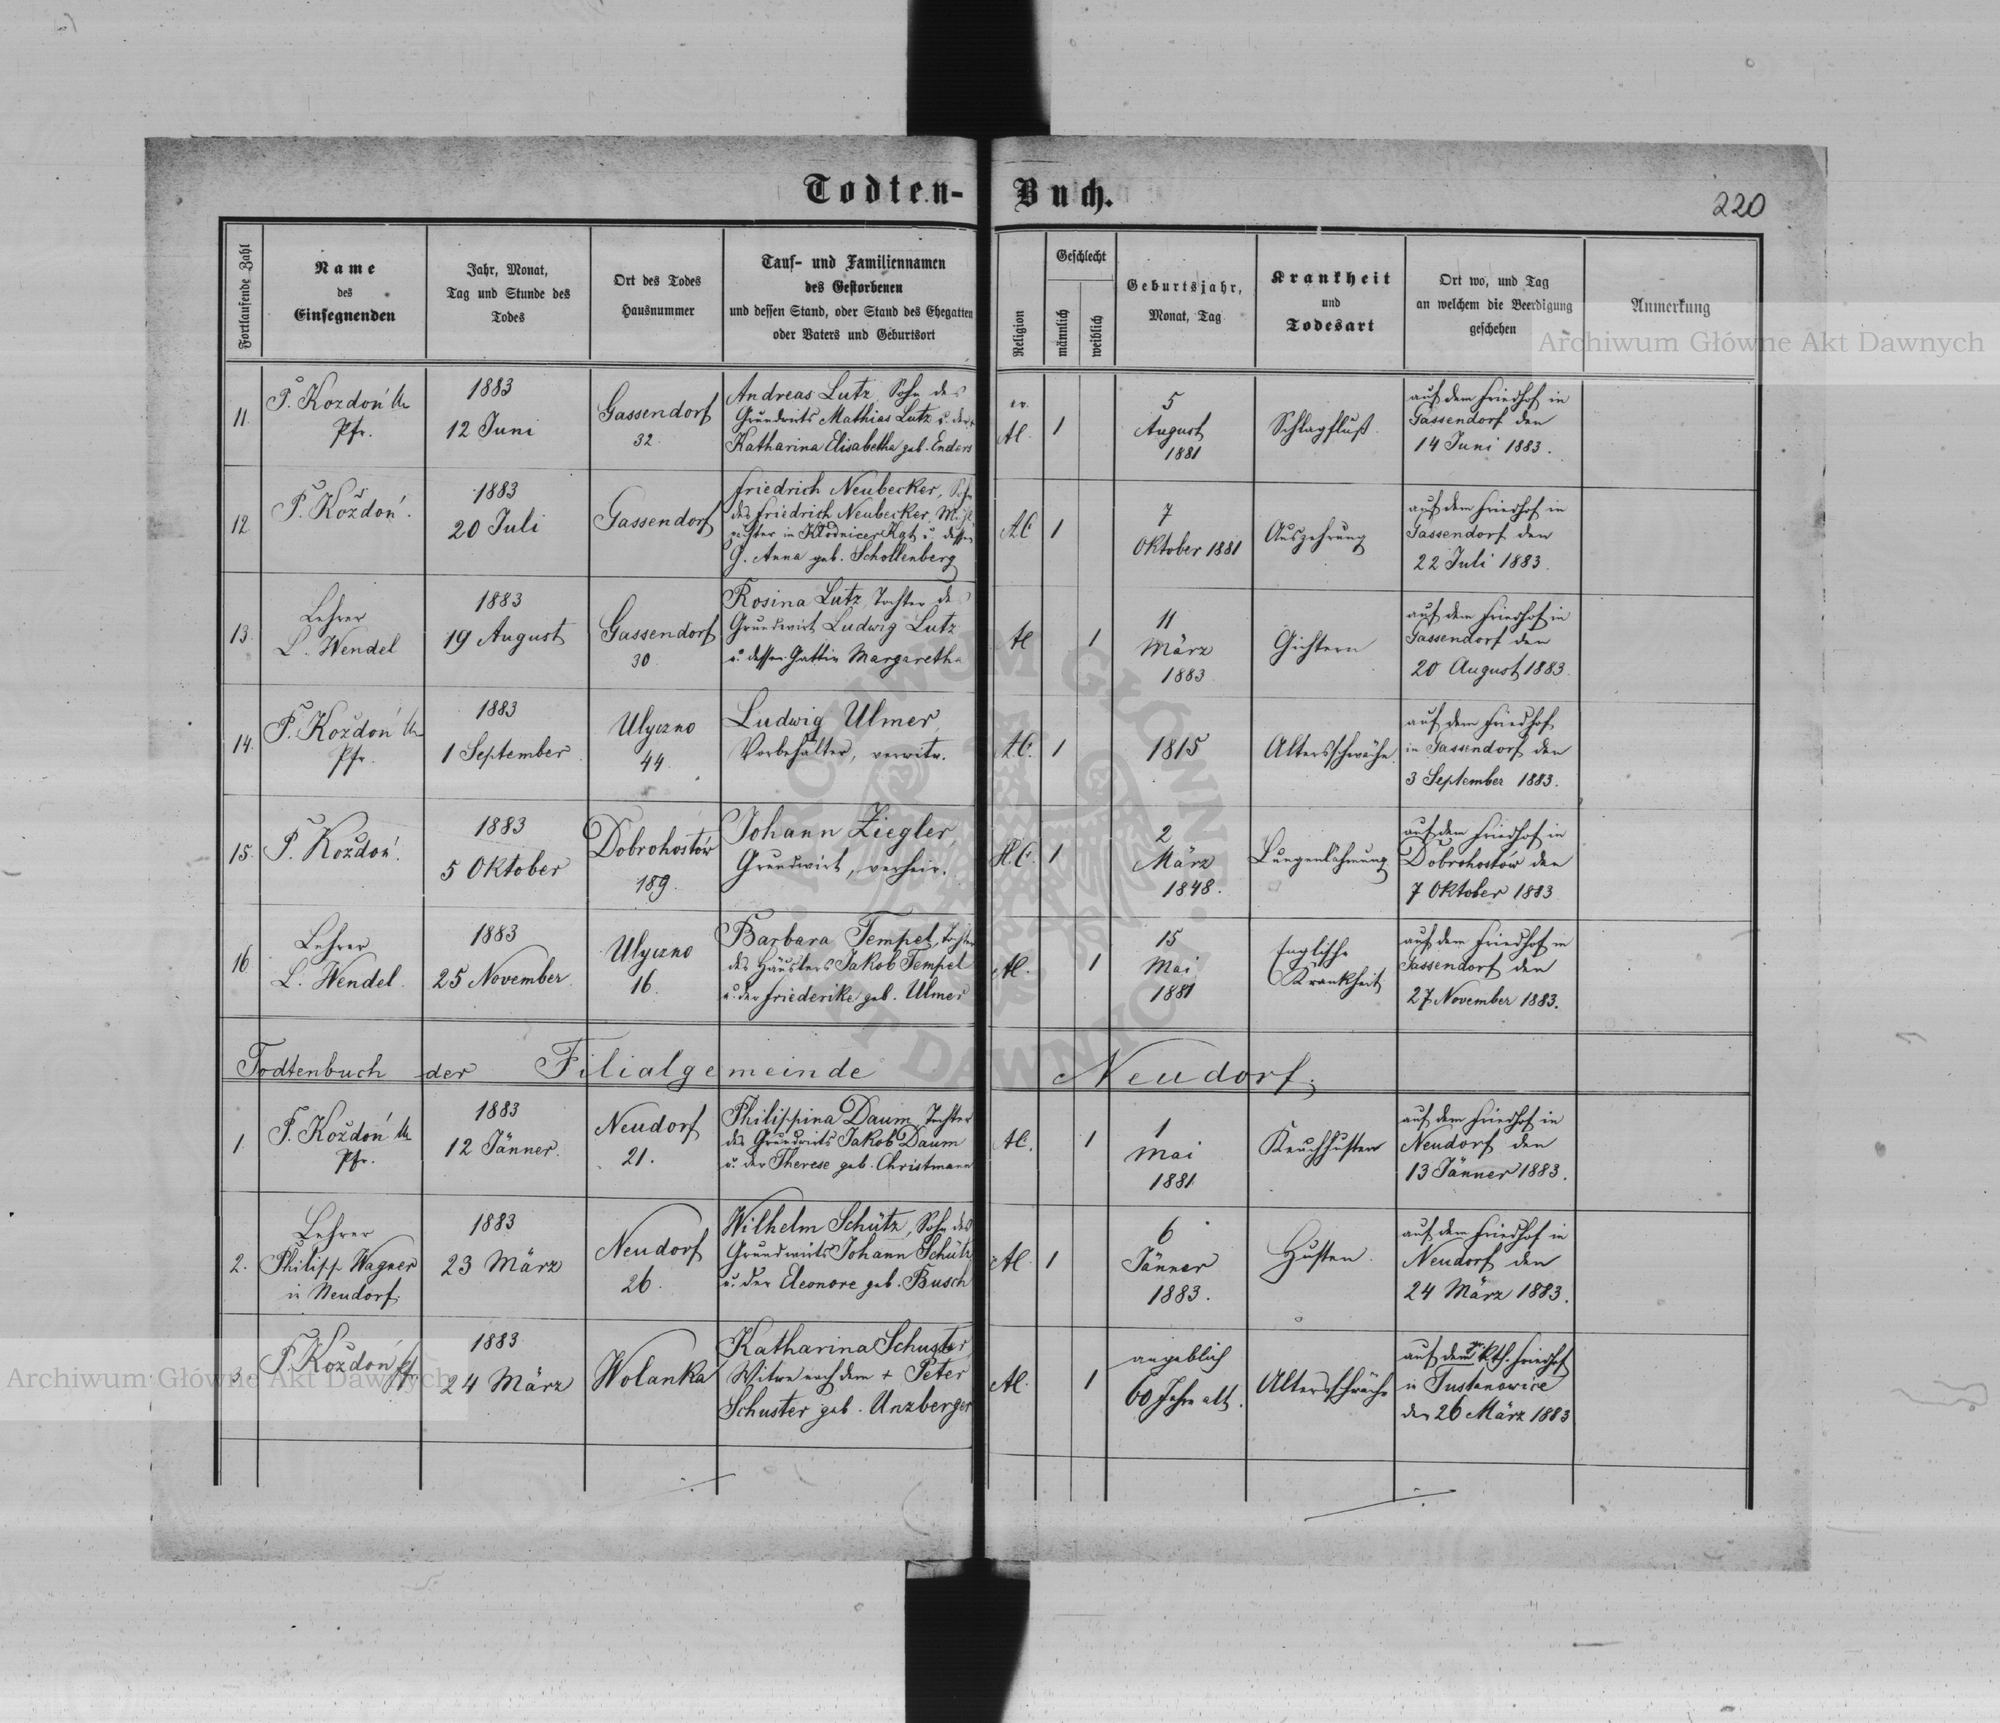 Todten-Buch.
220
Fortlaufende Zahl
Name
des
Einsegnenden
Jahr, Monat,
Tag und Stunde des
Todes
Ort des Todes
Hausnummer
Tauf- und Familiennamen
des Gestorbenen
und dessen Stand, oder Stand des Ehegatten
oder Vaters und Geburtsort
Religion
Geschlecht
männlich
weiblich
Geburtsjahr,
Monat, Tag
Krankheit
und
Todesart
Ort wo, und Tag
an welchem die Beerdigung
geschehen
Anmerkung
Archiwum Główne Akt Dawnych
11.
P. Kozdoń
Pfr.
1883
12 Juni
Gassendorf
32.
Andreas Lutz, Sohn des
Grundwirts Mathias Lutz u. der
Katharina Elisabetha geb. Enders
ev.
AC.
1
5
August
1881
Schlagfluß.
auf dem Friedhof in
Gassendorf den
14 Juni 1883.
12.
P. Koždoń.
1883
20 Juli
Gassendorf
Friedrich Neubecker, Sohn
des Friedrich Neubecker, Mühl
pächter in Kłodnicer Kgt u. dessen
G. Anna geb. Schollenberg
AC
1
7
Oktober 1881
Auszehrung
auf dem Friedhof in
Gassendorf den
22 Juli 1883.
13.
Lehrer
L. Wendel
1883
19 August
Gassendorf
30.
Rosina Lutz, Tochter des
Grundwirt Ludwig Lutz
u. dessen Gattin Margaretha
AC
1
11
März
1883
Gichtern
auf dem Friedhof in
Gassendorf den
20 August 1883.
14.
P. Koždoń
Pfr.
1883
1 September.
Ulyczno
44.
Ludwig Ulmer,
Vorbehälter, verwitw.
AC.
1
1815
Altersschwäche.
auf dem Friedhof
in Gassendorf den
3 September 1883.
15.
P. Koždoń.
1883
5 Oktober
Dobrohostów
189.
Johann Ziegler,
Grundwirt, verheir.
H.C.
1
2
März
1848.
Lungenlähmung
auf dem Friedhof in
Dobrohostów den
7 Oktober 1883
16.
Lehrer
L. Wendel.
1883
25 November.
Ulyczno
16.
Barbara Tempel, Tochter
des Häuslers Jakob Tempel
u. der Friederike geb. Ulmer
AC.
1
15
Mai
1881
Englische
Krankheit
auf dem Friedhof in
Gassendorf den
27 November 1883.
Todtenbuch der Filialgemeinde Neudorf.
1.
P. Koždoń
Pfr.
1883
12 Jänner.
Neudorf
21.
Philippina Daum, Tochter
des Grundwirts Jakob Daum
u. der Therese geb. Christmann
AC.
1
1
Mai
1881
Keuchhusten
auf dem Friedhof in
Neudorf den
13 Jänner 1883.
2.
Lehrer
Philipp Wagner
in Neudorf.
1883
23 März
Neudorf
26.
Wilhelm Schütz, Sohn des
Grundwirts Johann Schütz
u. der Eleonore geb. Busch
AC.
1
6
Jänner
1883.
Husten.
auf dem Friedhof in
Neudorf den
24 März 1883.
3.
P. Koždoń
1883
24 März
Wolanka
Katharina Schuster,
Witwe nach dem + Peter
Schuster geb. Unzberger
AC.
1
angeblich
60 Jahre alt.
Altersschwäche
auf dem kth. Friedhof
in Tustanowice
den 26 März 1883
Archiwum Główne Akt Dawnych
ARCHIWUM GŁÓWNE AKT DAWNYCH